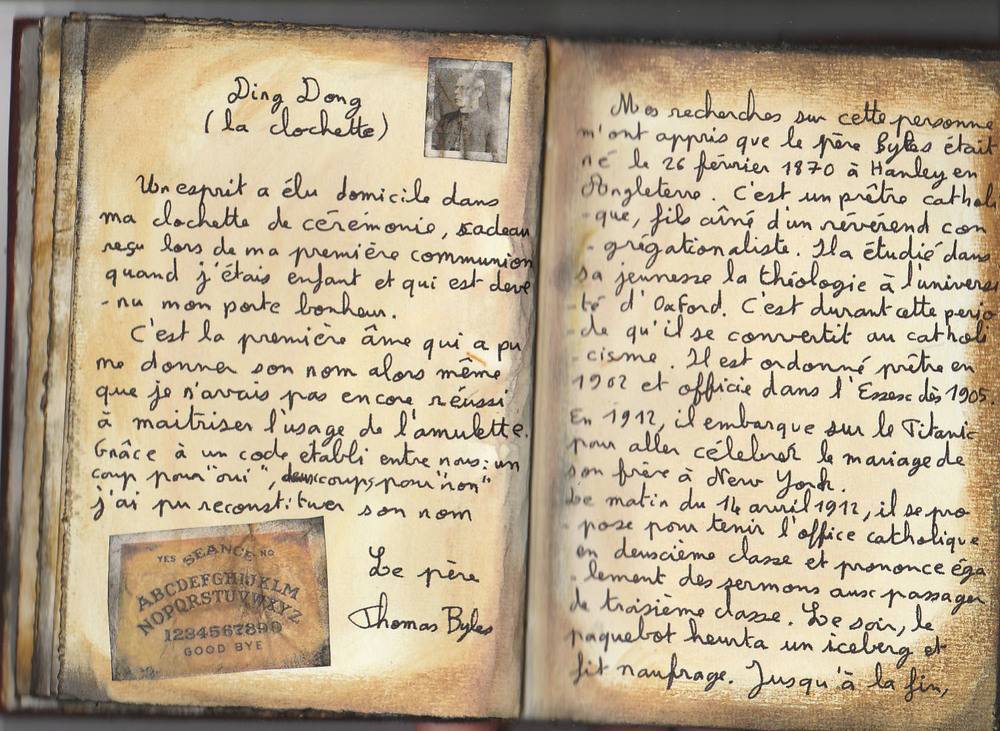 Ding Dong
(la clochette)
Un esprit a élu domicile dans
ma clochette de cérémonie, cadeau
reçu lors de ma première communion
quand j'étais enfant et qui est deve
-nu mon porte bonheur.
C'est la première âme qui a pu
me donner son nom alors même
que je n'avais pas encore réussi
à maitriser l'usage de l'amulette.
Grâce à un code établi entre nous: un
coup pour "oui", deux coups pour "non"
j'ai pu reconstituer son nom
Le père
Thomas Byles
YES SEANCE NO
ABCDEFGHIJKLM
NOPQRSTUVWXYZ
1234567890
GOOD BYE
Mes recherches sur cette personne
m'ont appris que le père Byles était
né le 26 février 1870 à Hanley en
Angleterre. C'est un prêtre catholi
-que, fils aîné d'un révérend con
-grégationaliste. Il a étudié dans
sa jeunesse la théologie à l'universi
-té d'Oxford. C'est durant cette perio
-de qu'il se convertit au catholi
-cisme. Il est ordonné prêtre en
1902 et officie dans l'Essex dès 1905.
En 1912, il embarque sur le Titanic
pour aller célébrer le mariage de
son frère à New York.
Le matin du 14 avril 1912, il se pro
-pose pour tenir l'office catholique
en deuxième classe et prononce éga
-lement des sermons aux passager
de troisième classe. Le soir, le
paquebot heurta un iceberg et
fit naufrage. Jusqu'à la fin,